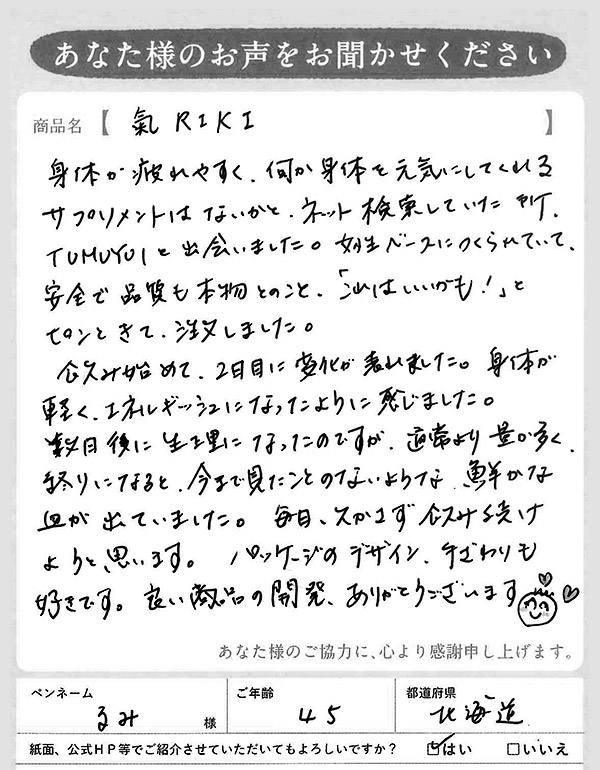 あなた様のお声をお聞かせください
商品名【 氣 RIKI 】
身体が疲れやすく、何か身体を元気にしてくれる
サプリメントはないかと、ネット検索していた所、
TUMUYUIと出会いました。女性ベースにつくられていて、
安全で品質も本物とのこと、「これはいいかも!」と
ピンときて、注文しました。
飲み始めて、2日目に変化が表れました。身体が
軽く、エネルギッシュになったように感じました。
数日後に生理になったのですが、通常より量が多く、
終りになると、今まで見たことのないような、鮮かな
血が出ていました。毎日、欠かさず飲み続け
ようと思います。パッケージのデザイン、手ざわりも
好きです。良い商品の開発、ありがとうございます
あなた様のご協力に、心より感謝申し上げます。
ペンネーム ご年齢 都道府県
るみ 様 45 北海道
紙面、公式HP等でご紹介させていただいてもよろしいですか? ☑はい □いいえ